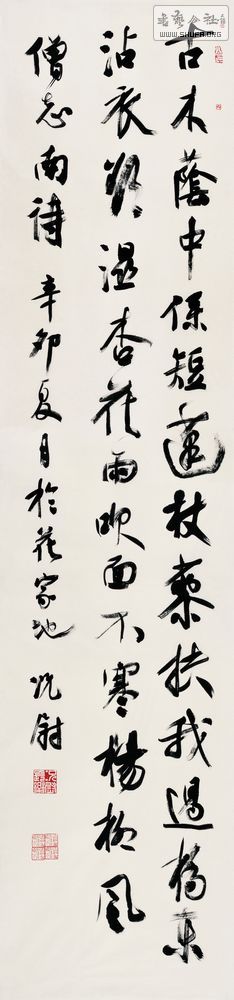 古木蔭中係短蓬杖藜扶我過橋東
沾衣欲濕杏花雨吹面不寒楊柳風
僧志南詩 辛卯夏月於花家地
書藝公社
WWW.SHUFA.ORG